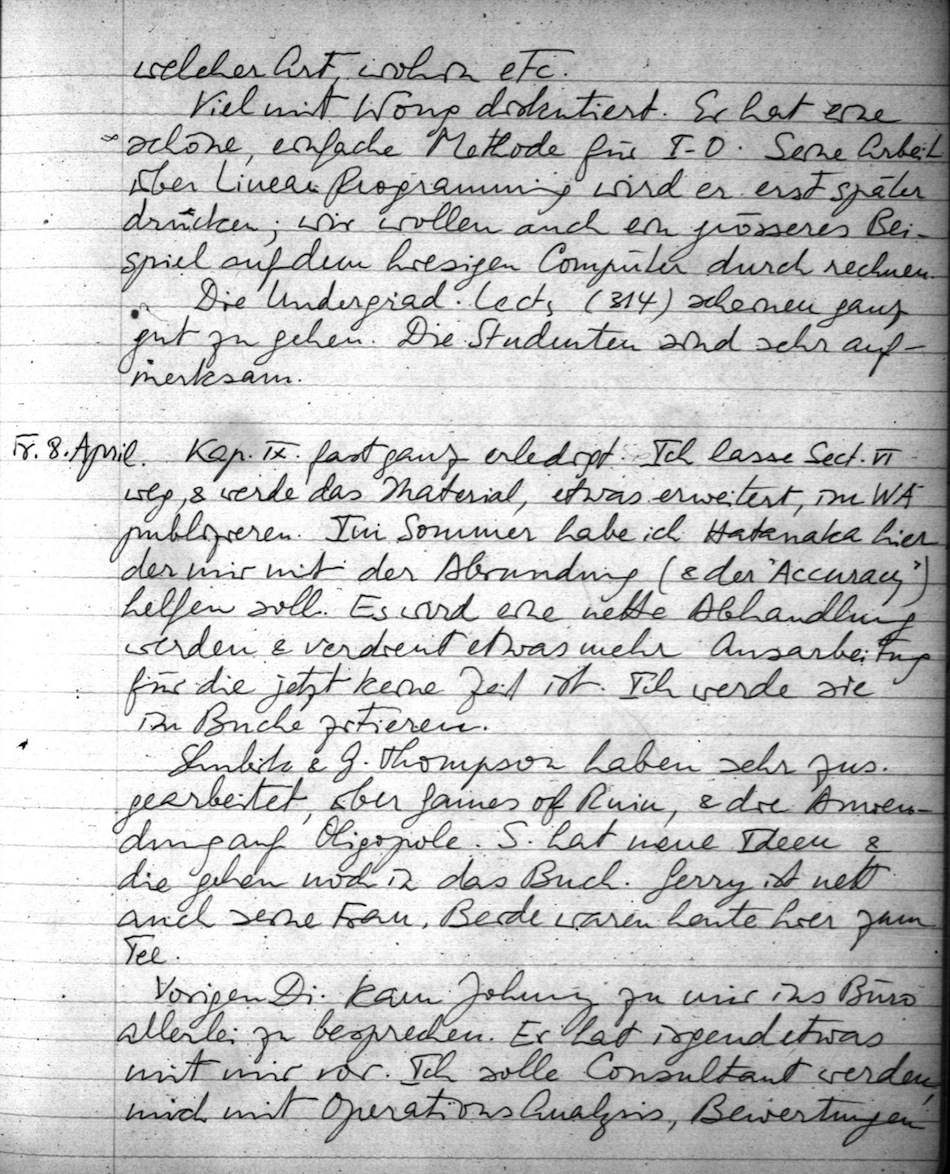 welcher Art, wohin etc.
Viel mit Wong diskutiert. Er hat eine
schöne, einfache Methode für I-O. Seine Arbeit
über Linear Programming wird er erst später
drucken; wir wollen auch ein grösseres Bei-
spiel auf dem hiesigen Computer durch rechnen.
Die Undergrad. Lect, (314) scheinen ganz
gut zu gehen. Die Studenten sind sehr auf-
merksam.
Fr. 8. April. Kap. IX. fast ganz erledigt. Ich lasse Sect. VI
weg, & werde das Material, etwas erweitert, im WA
publizieren. Im Sommer habe ich Hatanaka hier
der mir mit der Abrundung (& der "Accuracy")
helfen soll. Es wird eine nette Abhandlung
werden & verdient etwas mehr Ausarbeitung
für die jetzt keine Zeit ist. Ich werde sie
im Buche zitieren.
Shubik & G. Thompson haben sehr zus.
gearbeitet, über Games of Ruin, & die Anwen-
dung auf Oligopole. S. hat neue Ideen &
die gehen noch in das Buch. Gerry ist nett
auch seine Frau. Beide waren heute hier zum
Tee.
Vorigen Di. kam Johnny zu mir ins Büro
allerlei zu besprechen. Er hat irgend etwas
mit mir vor. Ich solle Consultant werden,
mich mit Operations Analysis, Bewertungen